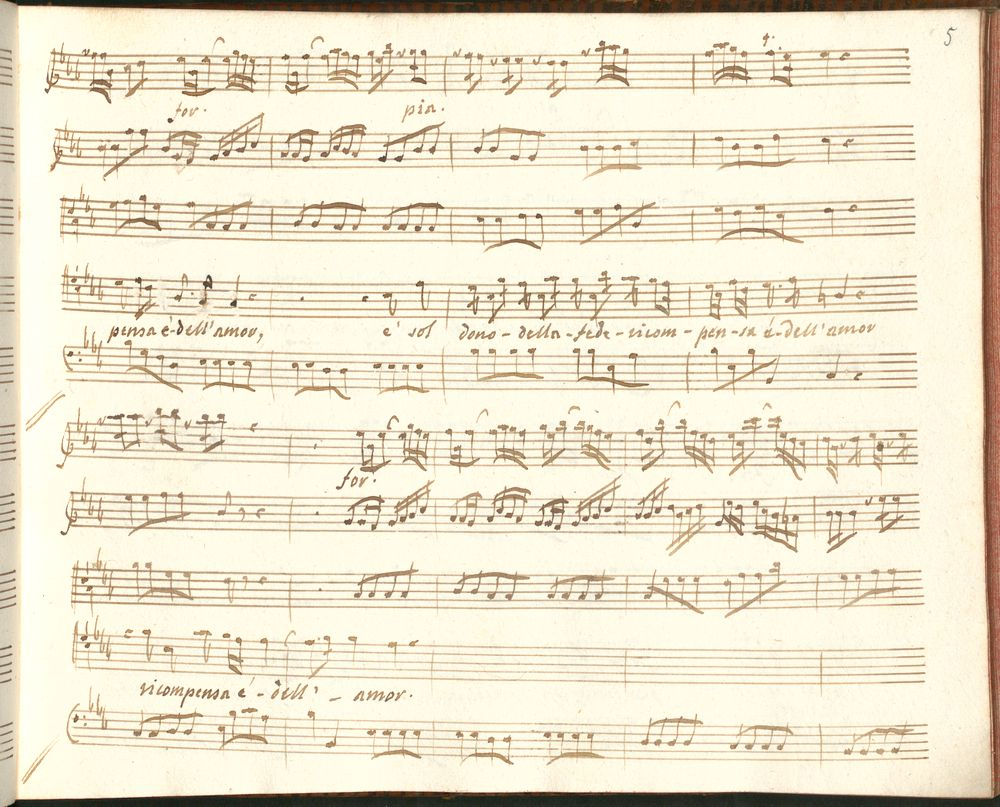 5
for. pia.
pensa é-dell'amor, e' sol dono-della-fede-ricom-pen-sa é-dell'amor
for.
ricompensa é-dell'-amor.